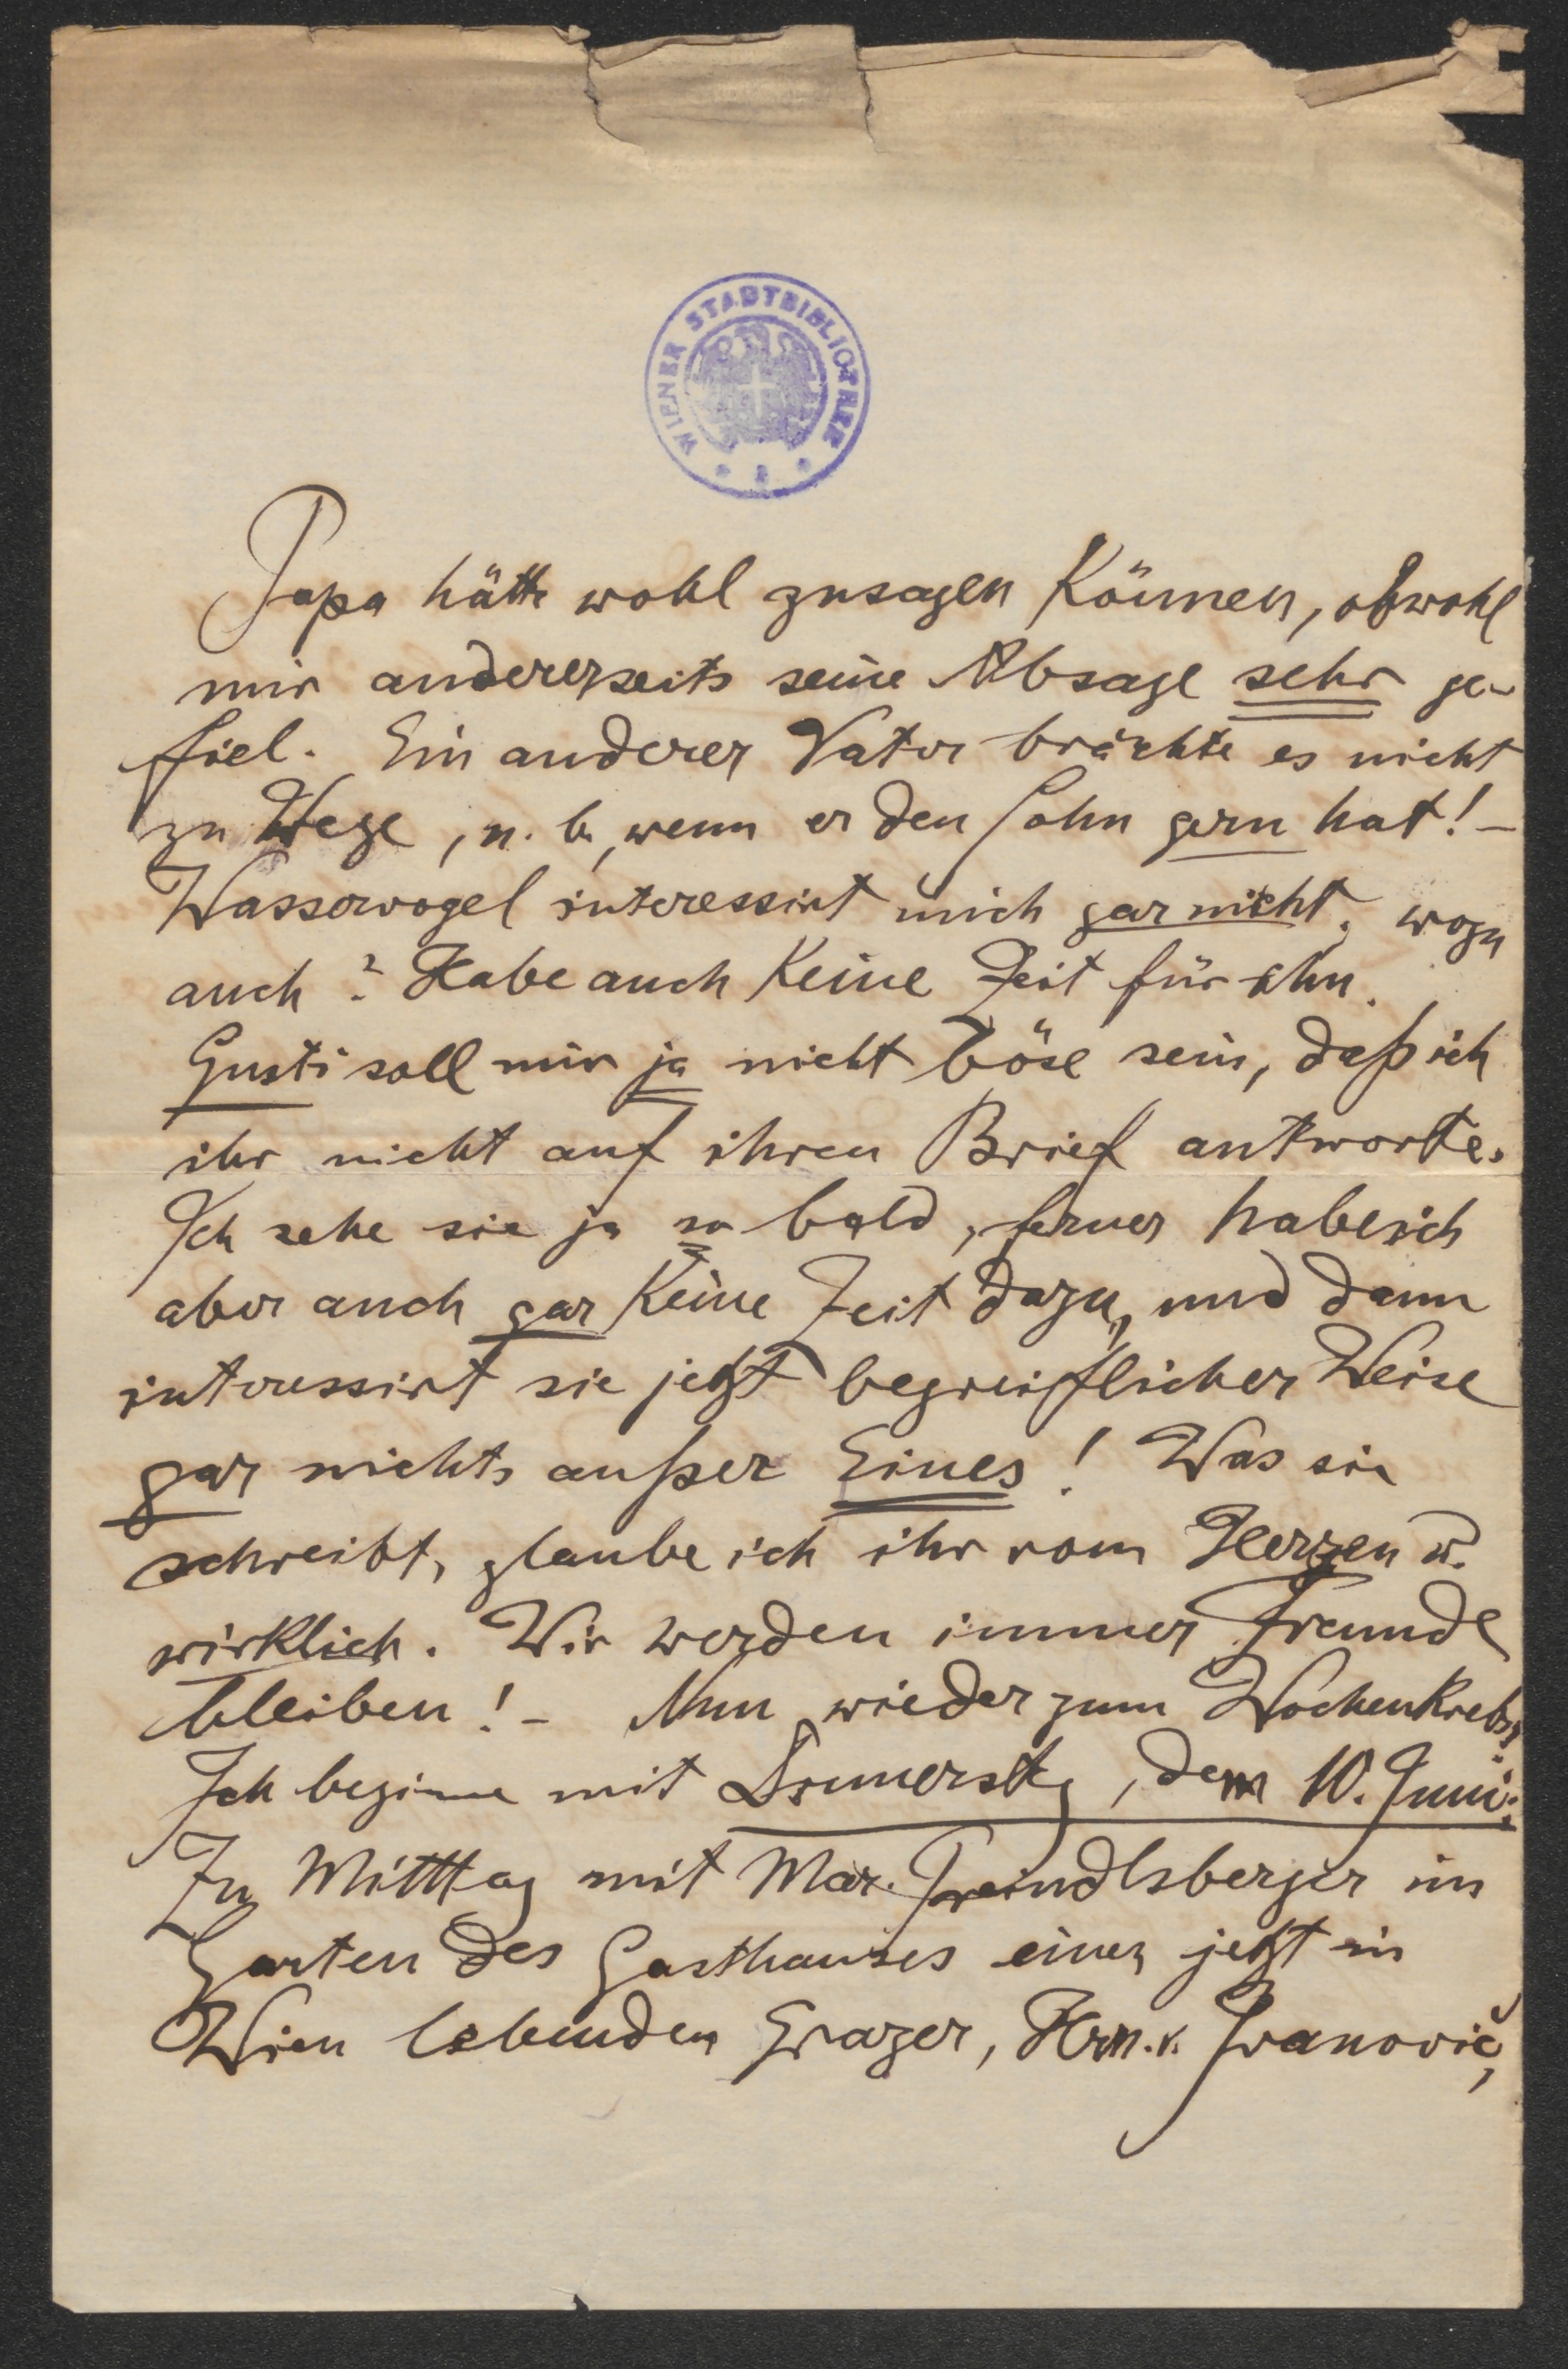 WIENER STADTBIBLIOTHEK
Papa hätte wohl zusagen können, obwohl
mir andererseits seine Absage sehr ge-
fiel. Ein anderer Vater brächte es nicht
zu Wege, n. b., wenn er den Sohn gern hat! -
Wasservogel interessirt mich gar nicht, wozu
auch? Habe auch keine Zeit für ihn.
Gusti soll mir ja nicht böse sein, daß ich
ihr nicht auf ihren Brief antworte.
Ich sehe sie ja so bald, ferner habe ich
aber auch gar keine Zeit dazu, und dann
interessirt sie jetzt begreiflicher Weise
gar nichts außer Eines! Was sie
schreibt, glaube ich ihr vom Herzen u.
wirklich. Wir werden immer Freunde
bleiben! - Nun wieder zum Wochenkrebs,
Ich beginne mit Donnerstg, dem 10. Juni:
Zu Mitttag mit Mar. Treindlsberger im
Garten des Gasthauses eines jetzt in
Wien lebenden Grazer, Hrn. v. Ivanovič,